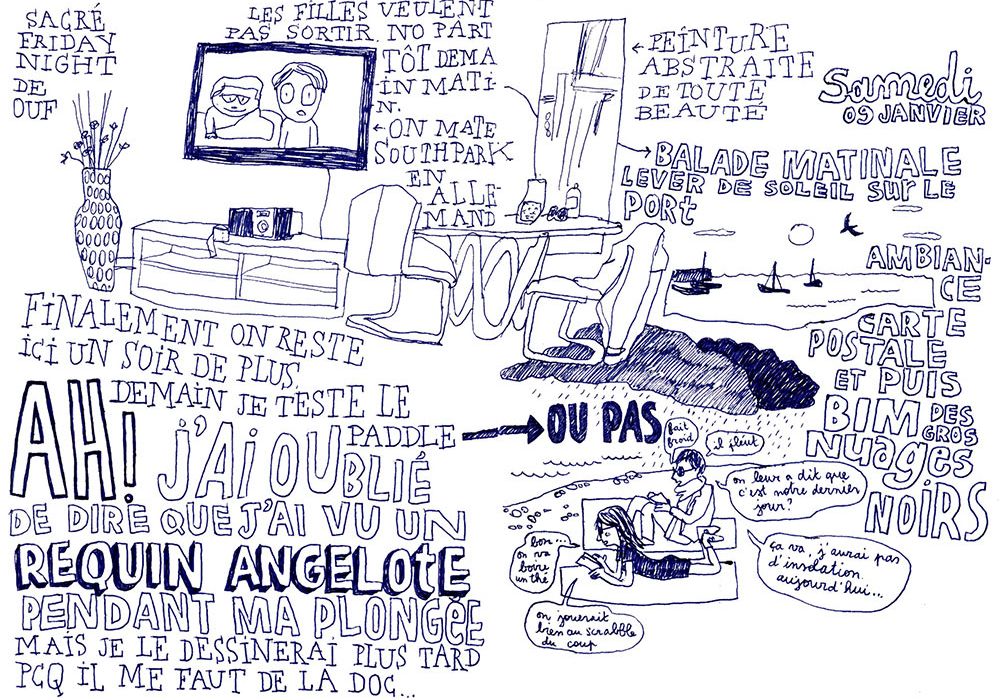 SACRÉ
FRIDAY
NIGHT
DE
OUF
LES FILLES VEULENT
PAS SORTIR. NO PART
TÔT DEMA
IN MATI-
N.
←ON MATE
SOUTHPARK
EN
ALLE-
MAND
←PEINTURE
ABSTRAITE
DE TOUTE
BEAUTÉ
Samedi
09 JANVIER
→BALADE MATINALE
LEVER DE SOLEIL SUR LE
PORt
AMBIAN-
CE
CARTE
POSTALE
ET PUIS
BIM DES
GROS
Nuages
NOIRS
FINALEMENT ON RESTE
ICI UN SOIR DE PLUS.
DEMAIN JE TESTE LE
PADDLE
→ OU PAS
AH! J'AI OUBLIÉ
DE DIRE QUE J'AI VU UN
REQUIN ANGELOtE
PENDANT MA PLONGÉE
MAIS JE LE DESSINERAI PLUS TARD
PCQ IL ME FAUT DE LA DOC...
fait
froid
il pleut
on leur a dit que
c'est notre dernier
jour?
ça va, j'aurai pas
d'insolation
aujourd'hui...
bon...
on va
boire
un thé
on jouerait
bien au scrabble
du coup